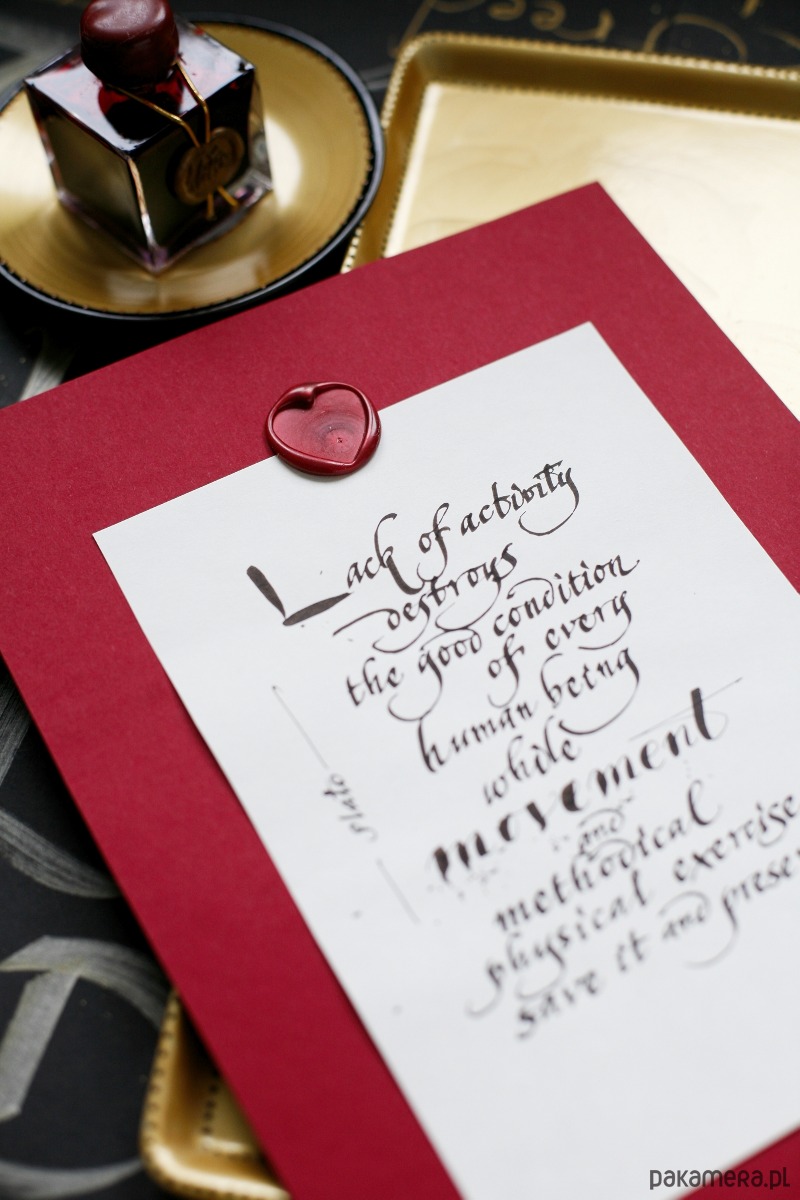 Lack of activity
destroys
the good condition
of every
human being
while
movement
and
methodical
physical exercise
save it and preser
Plato
pakamera.pl